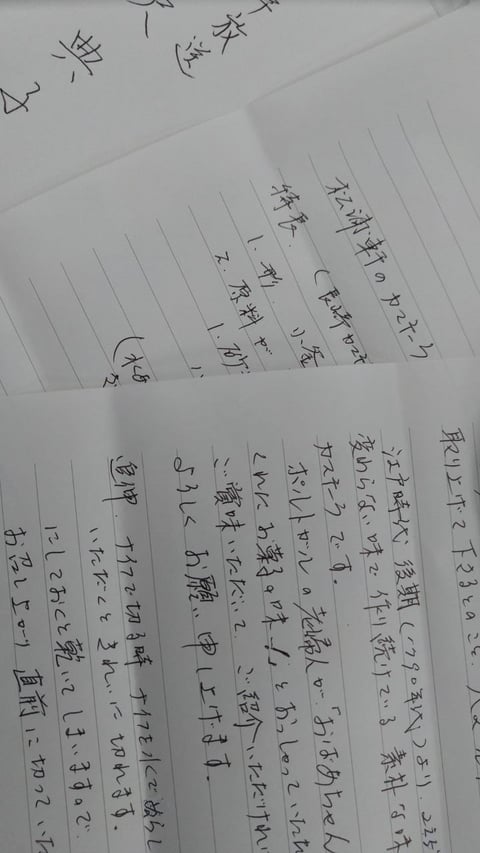 放送
典
松浦軒のカステラ
(長崎カステ
特長.
1. 形.
2. 原料が
取り上げて下さるとのこと、
江戸時代後期(1790年代)より、
変わらない味で作り続けている 素朴な味
カステラです。
ポルトガルの老婦人が「おばあちゃん
くれたお菓子の味!」とおっしゃっていた
ご賞味いただいて、ご紹介いただければ
よろしくお願い申し上げます。
追伸. ナイフで切る時 ナイフを水でぬらして
いただくと きれいに切れます。
にしておくと乾いてしまいますので、
お召し上がり直前に切っていた